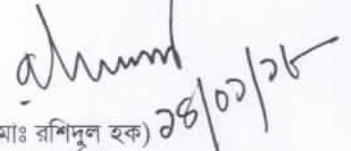 মাঃ রশিদুল হক) ২৪/০১/১৮